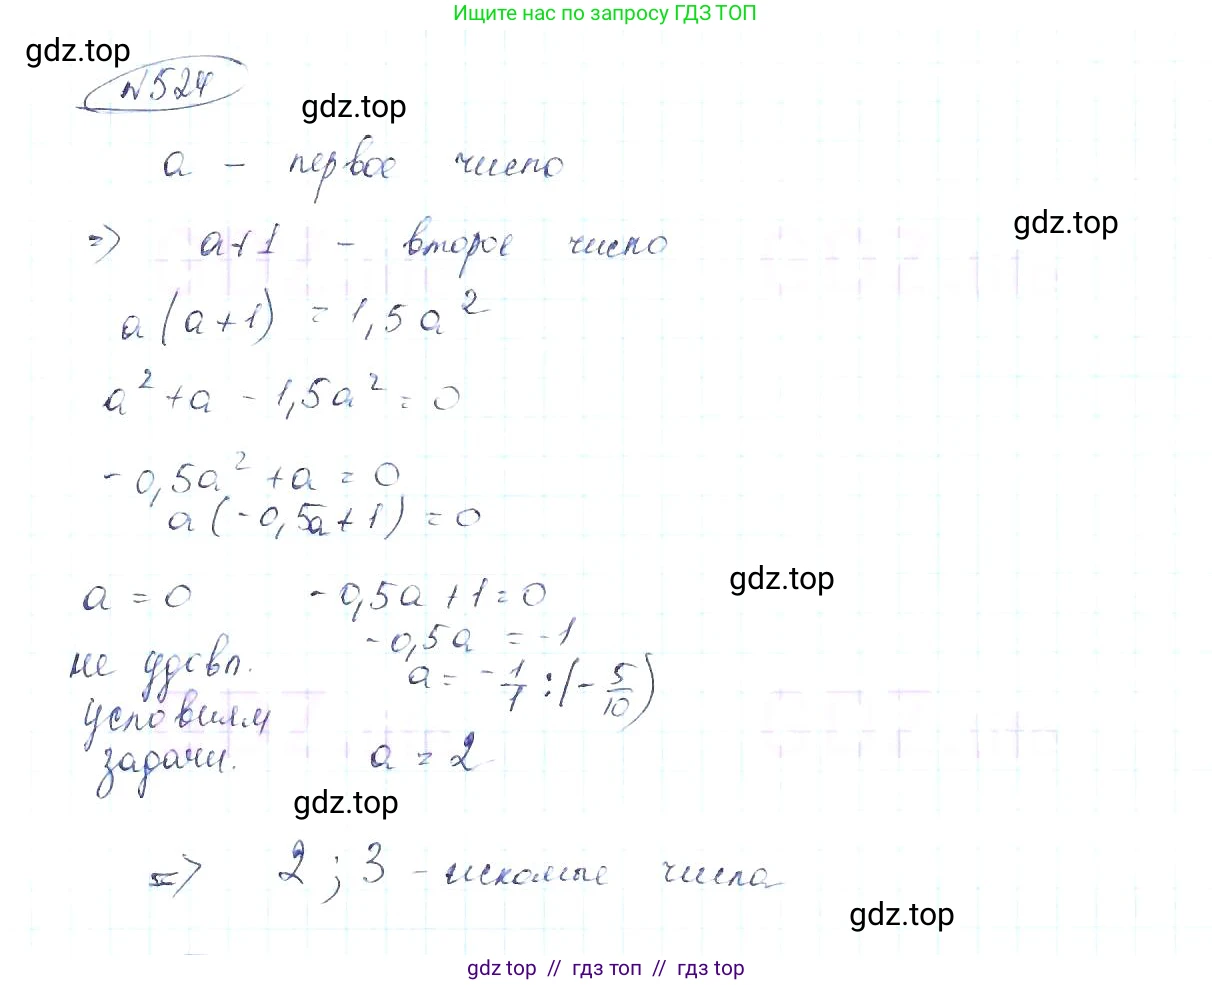 Ищите нас по запросу ГДЗ ТОП
gdz.top
№524
gdz.top
a - первое число
gdz.top
=> a+1 - второе число
a(a+1) = 1,5a²
a² + a - 1,5a² = 0
-0,5a² + a = 0
a(-0,5a+1) = 0
gdz.top
a = 0 -0,5a+1=0
-0,5a = -1
не удовл. a = -1/1 : (-5/10)
условиям
задачи. a = 2
gdz.top
=> 2; 3 - искомые числа
gdz.top
gdz top // гдз топ // гдз top